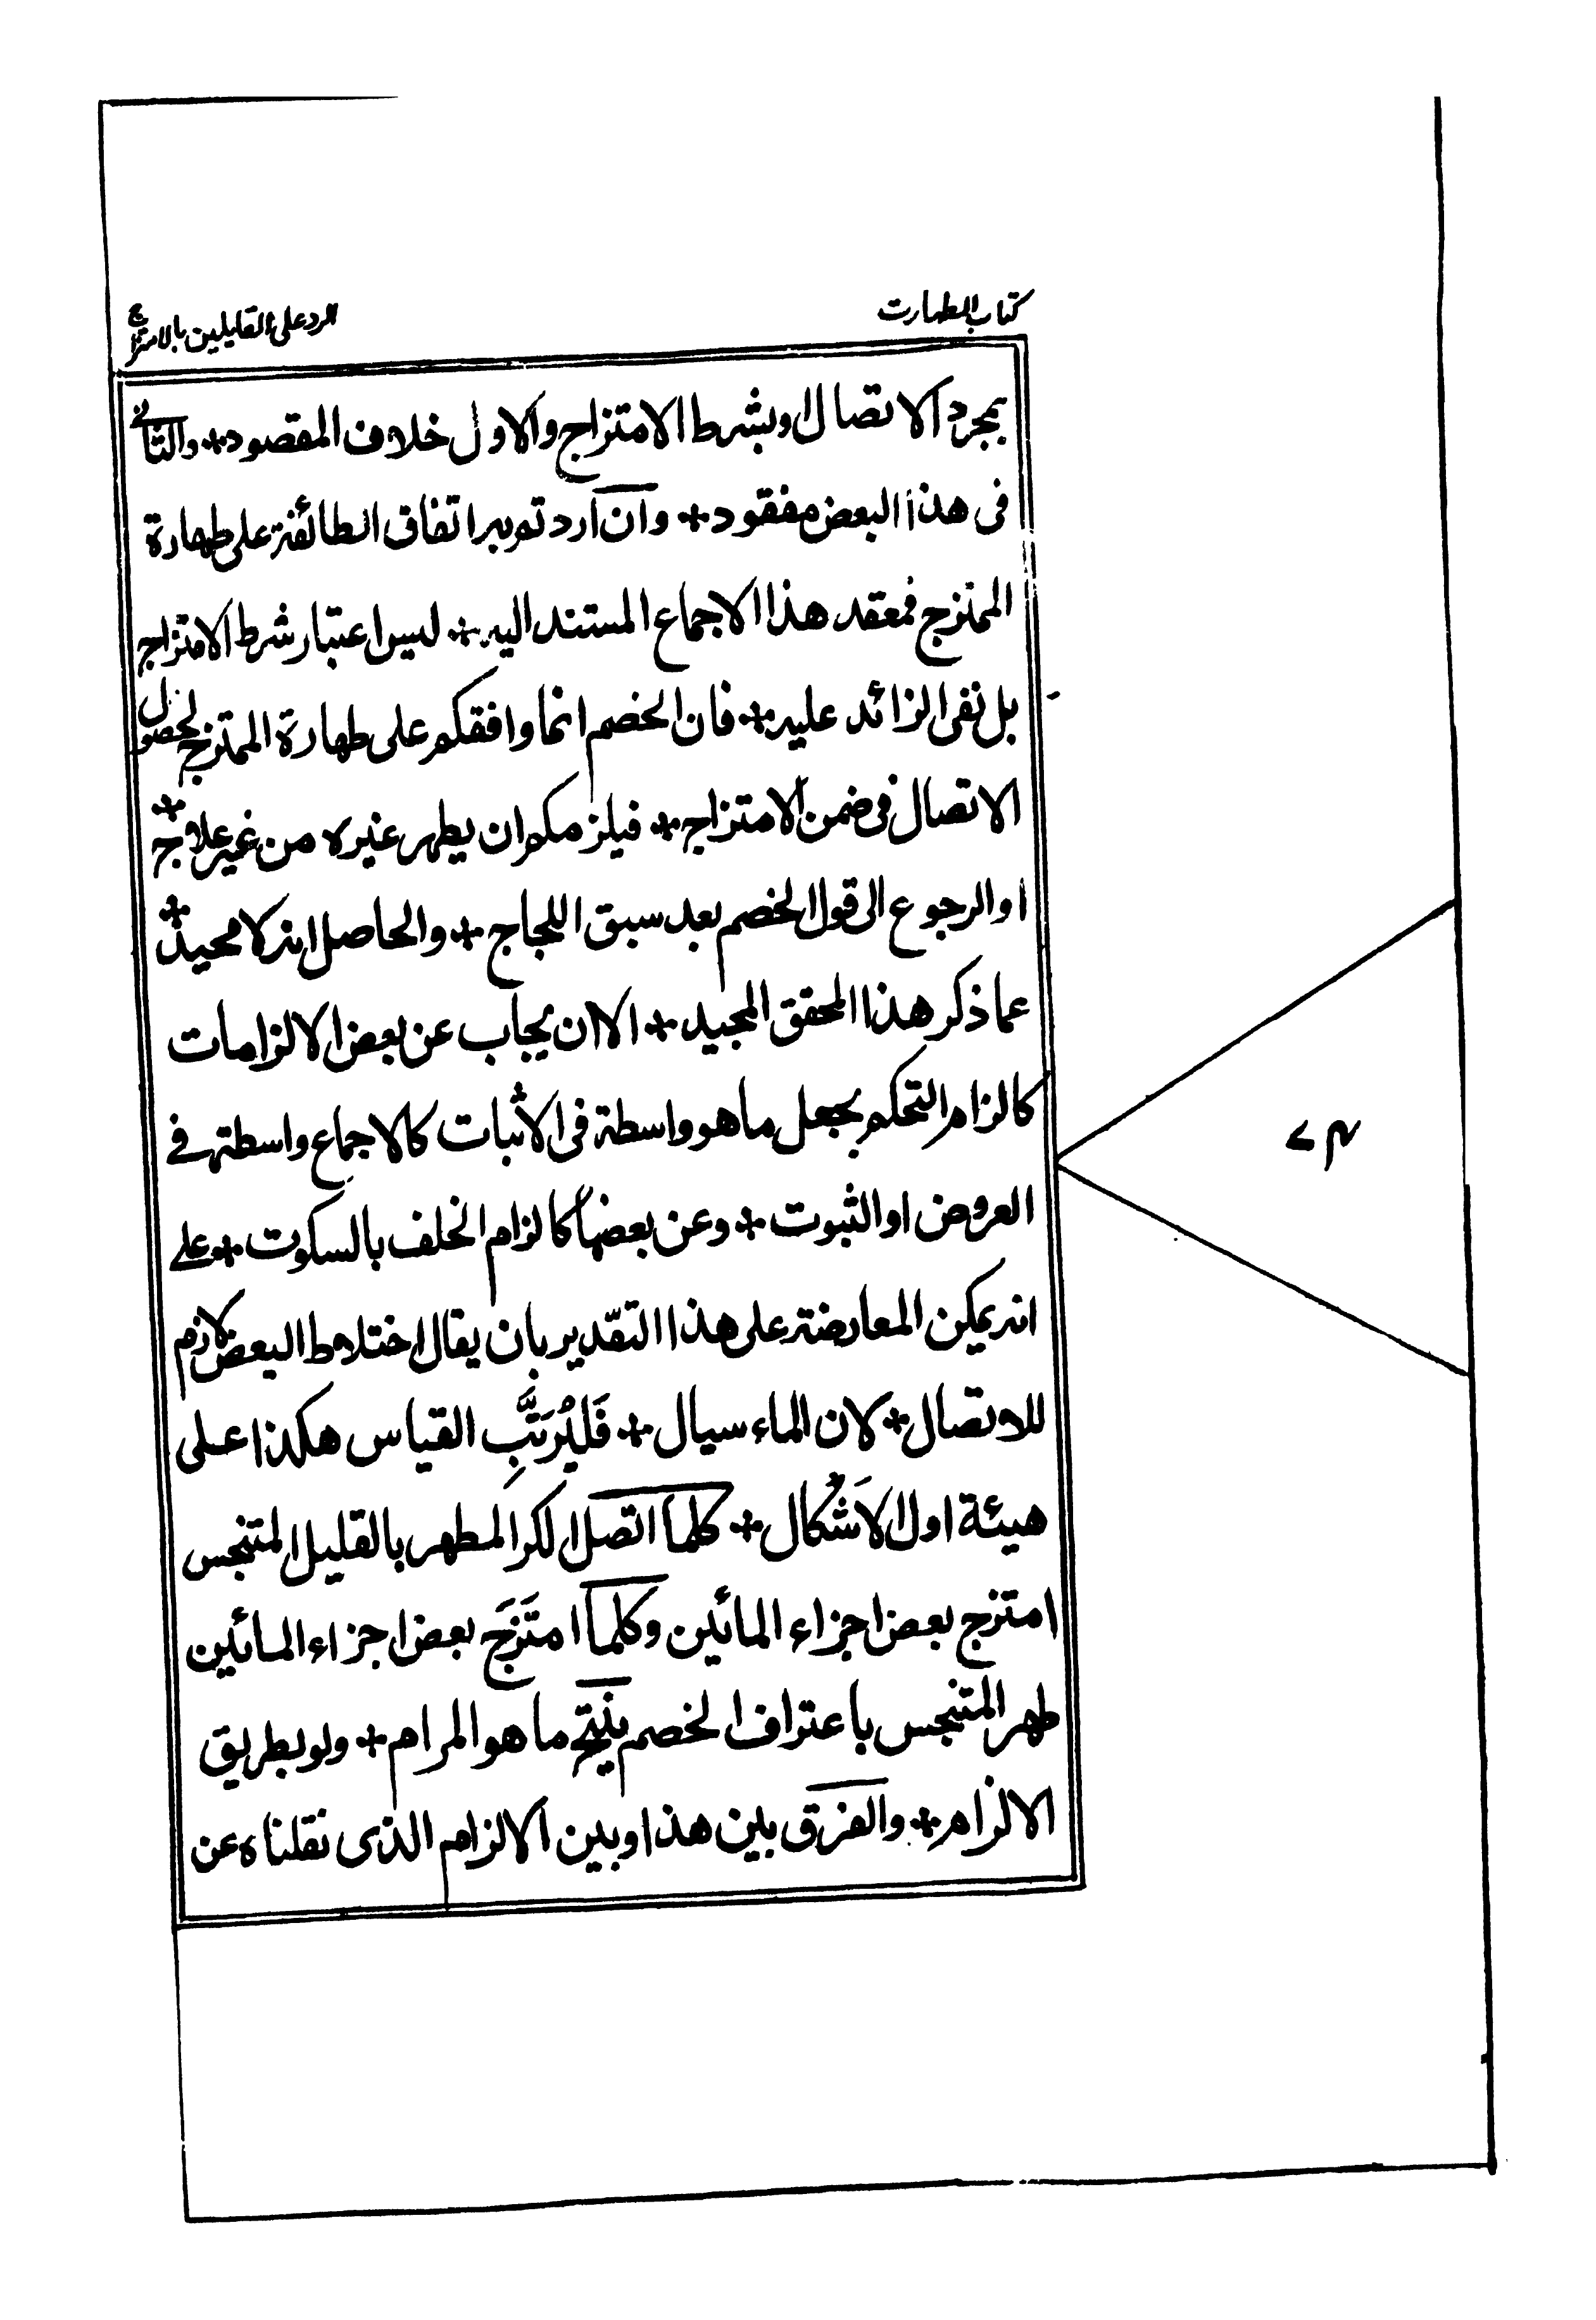 كتاب الطهارت
الرد على القايلين بالامتزاج
بمجرد الاتصال او بشرط الامتزاج والاول خلاف المقصود ÷ والثاني
فى هذا البعض مفقود ÷ وان اردتم به اتفاق الطائفة على طهارة
الممتزج فمعقد هذا الاجماع المستند اليه ÷ ليس اعتبار شرط الامتزاج
بل نفى الزائد عليه ÷ فان الخصم انما وافقكم على طهارة الممتزج لحصول
الاتصال فى ضمن الامتزاج ÷ فيلزمكم ان يطهر غيره من غير علاج ÷
او الرجوع الى قول الخصم بعد سبق اللجاج ÷ والحاصل انه لا محيد ÷
عما ذكر هذا المحقق المجيد ÷ الا ان يجاب عن بعض الالزامات
كالزام التحكم بجعل ما هو واسطة فى الاثبات كالاجماع واسطته فے
العروض او الثبوت ÷ وعن بعضها كالزام الخلف بالسكوت ÷ وعلے
انه يمكن المعارضة على هذا التقدير بان يقال اختلاط البعض لازم
للاتصال ÷ لان الماء سيال ÷ فَليُرَتَّبِ القياس هكذا على
هيئة اول الاَشْكال ÷ كلما اتصل الكر المطهر بالقليل المتنجس
امتزج بعض اجزاء المائين وكلما امتَزَجَ بعض اجزاء المائين
طهر المتنجس باعتراف الخصم ينتج ما هو المرام ÷ ولو بطريق
الالزام ÷ والفرق بين هذا وبين الالزام الذى نقلناه عن
۷۴